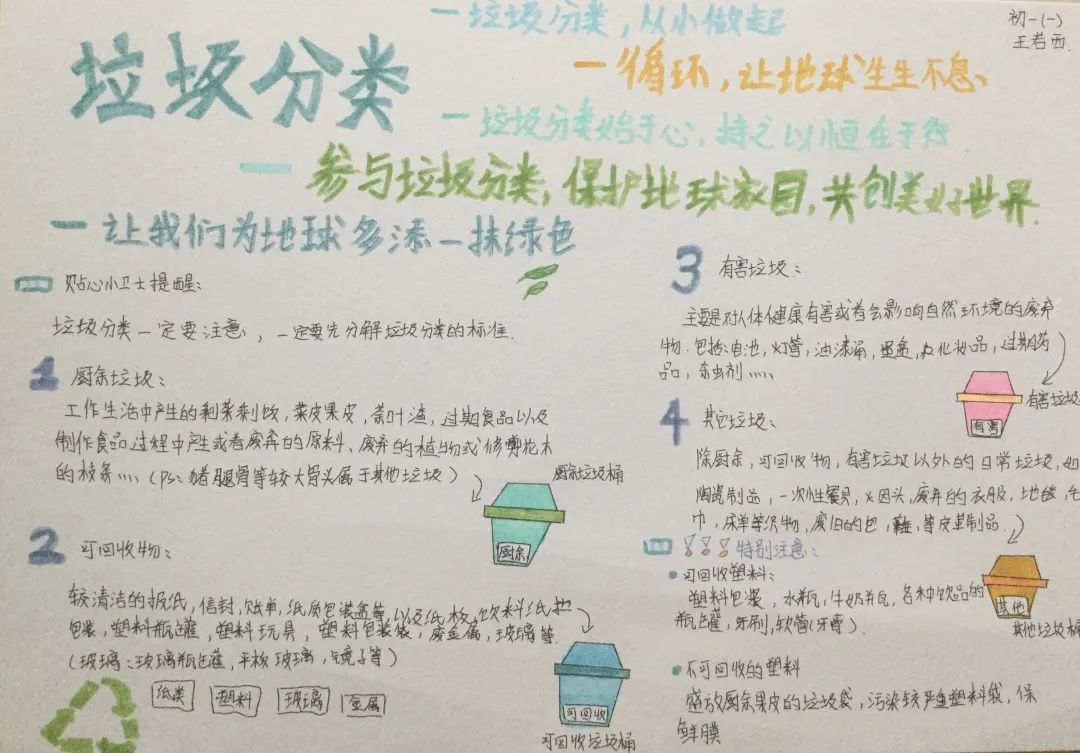 垃圾分类
一 垃圾分类，从小做起
一 循环，让地球生生不息、
一 垃圾分类始于心，持之以恒在于行.
一 参与垃圾分类，保护地球家园，共创美好世界.
一 让我们为地球多添一抹绿色
初一(一)
王若西
贴心小卫士提醒：
垃圾分类一定要注意，一定要先分解垃圾分类的标准.
1 厨余垃圾：
工作生活中产生的剩菜剩饭，菜皮果皮，茶叶渣，过期食品以及
制作食品过程中产生或者废弃的原料、废弃的植物或修剪花木
的枝条……（Ps：猪腿骨等较大骨头属于其他垃圾）
厨余垃圾桶
厨余
2 可回收物：
较清洁的报纸，信封，账单，纸质包装盒等，以及纸板，饮料纸
包装，塑料瓶罐，塑料玩具，塑料包装袋，废金属，玻璃等.
（玻璃：玻璃瓶罐，平板玻璃，镜子等）
纸类 塑料 玻璃 金属
可回收
可回收垃圾桶
3 有害垃圾：
主要是对人体健康有害或者会影响自然环境的废弃
物.包括：电池，灯管，油漆桶，墨盒，化妆品，过期药
品，杀虫剂……
有害垃圾
有害
4 其它垃圾：
除厨余，可回收物，有害垃圾以外的日常垃圾，如
陶瓷制品，一次性餐具，烟头，废弃的衣服，地毯，毛
巾，床单等织物，废旧的包，鞋，等皮革制品.
！！！特别注意：
●可回收塑料：
塑料包装，水瓶，牛奶瓶，各种饮品的
瓶罐，牙刷，软管（牙膏）
其他
其他垃圾桶
●不可回收的塑料
盛放厨余果皮的垃圾袋，污染较严重塑料袋，保
鲜膜